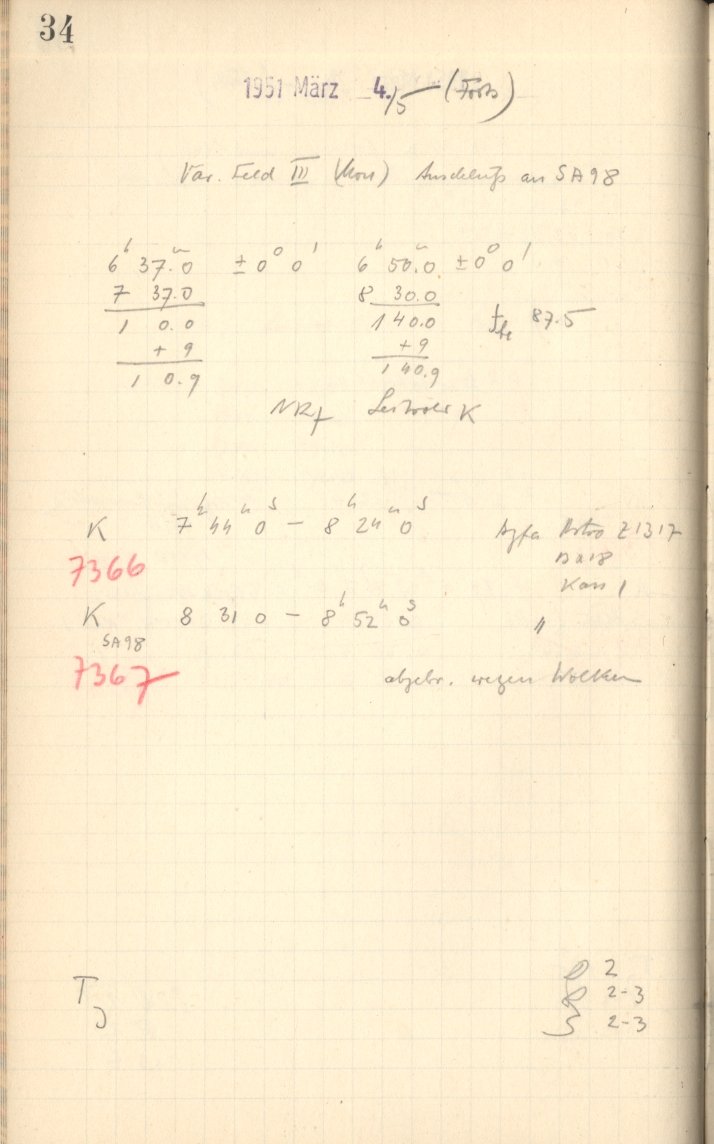 34
1951 März 4./5 (Forts)
Var. Feld III (Mon) Anschluß an SA98
6h 37.m0 ±0° 0' 6h 50.m0 ±0° 0'
7 37.0 8 30.0
1 0.0 1 40.0 87.5
+ 9 + 9
1 0.9 1 40.9
K
K 7h 44m 0s – 8h 24m 0s Agfa Astro Z1317
7366
Kass 1
K 8 31 0 – 8h 52m 0s "
SA98
7367 abgebr. wegen Wolken
2
T 2-3
2-3